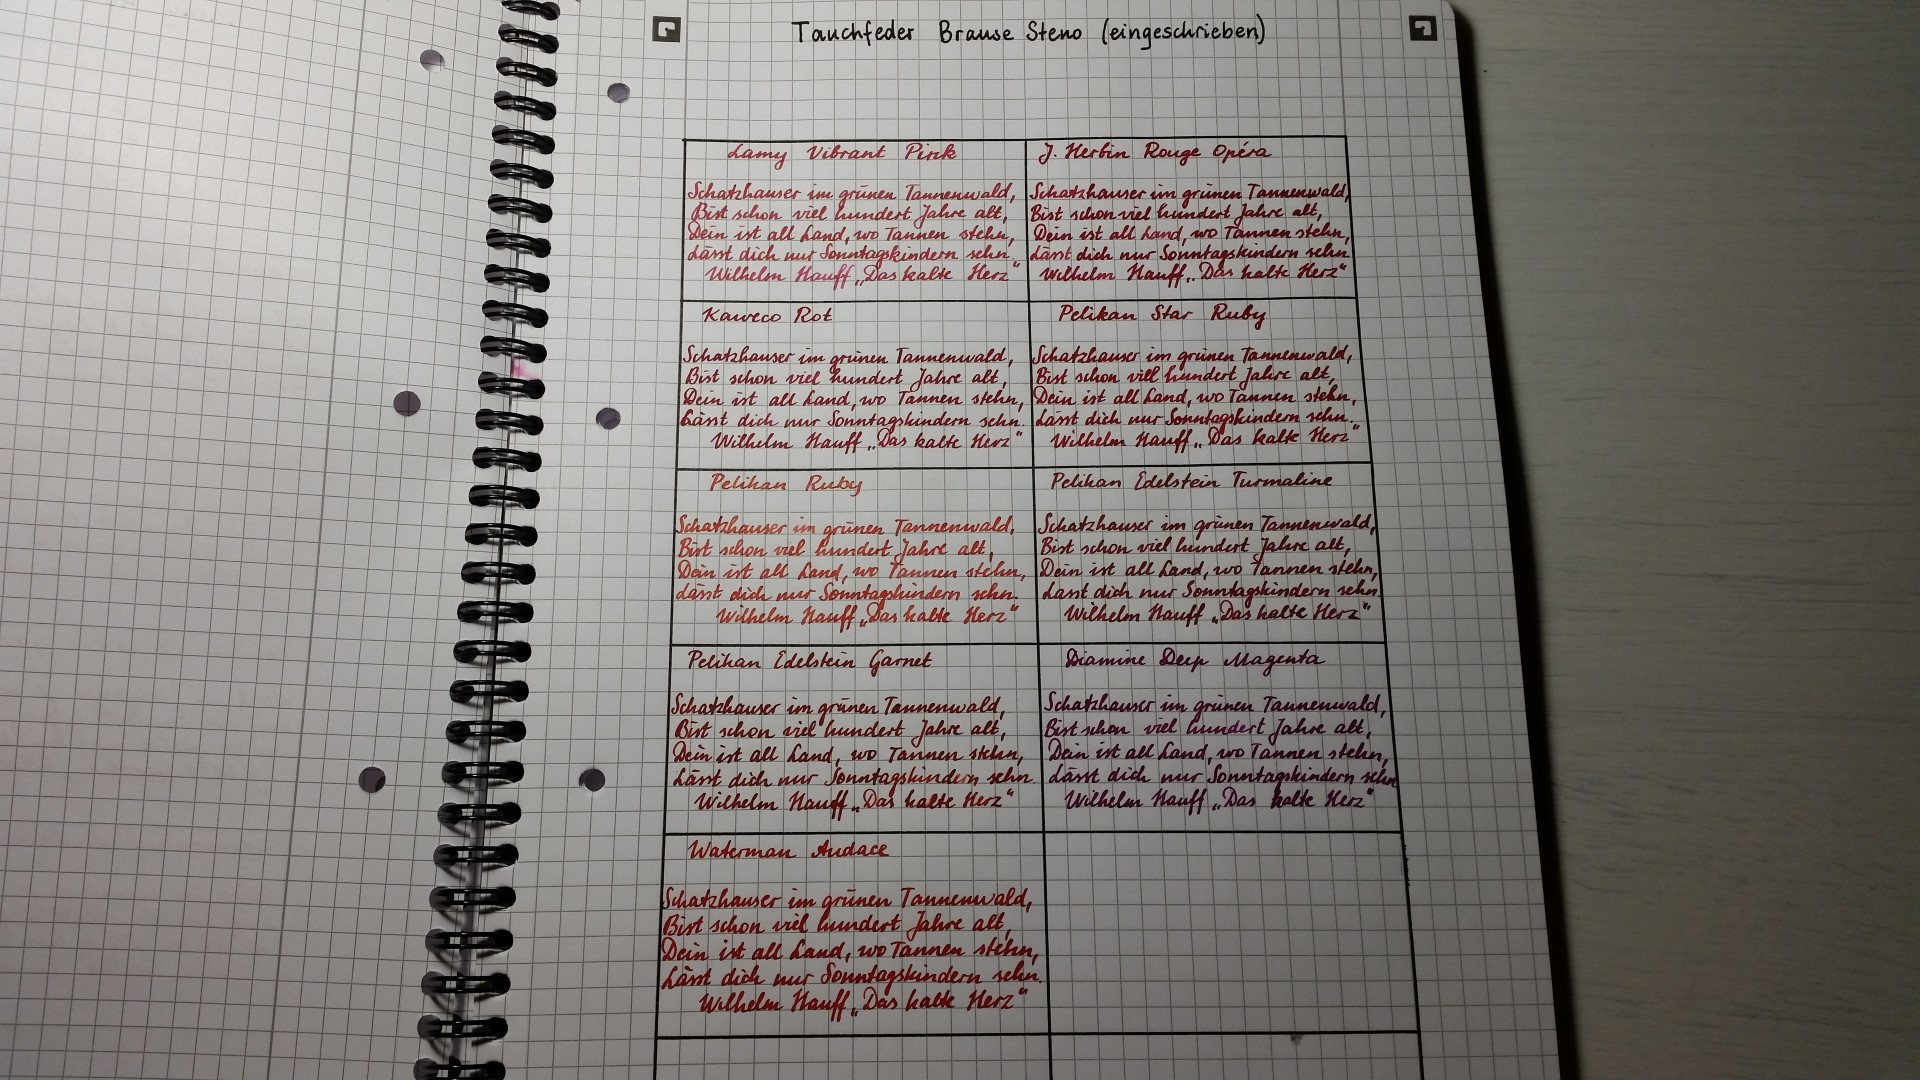 Tauchfeder Brause Steno (eingeschrieben)
Lamy Vibrant Pink
Schatzhauser im grünen Tannenwald,
Bist schon viel hundert Jahre alt,
Dein ist all Land, wo Tannen stehn,
Lässt dich nur Sonntagskindern sehn.
Wilhelm Hauff „Das kalte Herz“
J. Herbin Rouge Opéra
Schatzhauser im grünen Tannenwald,
Bist schon viel hundert Jahre alt,
Dein ist all Land, wo Tannen stehn,
Lässt dich nur Sonntagskindern sehn.
Wilhelm Hauff „Das kalte Herz“
Kaweco Rot
Schatzhauser im grünen Tannenwald,
Bist schon viel hundert Jahre alt,
Dein ist all Land, wo Tannen stehn,
Lässt dich nur Sonntagskindern sehn.
Wilhelm Hauff „Das kalte Herz“
Pelikan Star Ruby
Schatzhauser im grünen Tannenwald,
Bist schon viel hundert Jahre alt,
Dein ist all Land, wo Tannen stehn,
Lässt dich nur Sonntagskindern sehn.
Wilhelm Hauff „Das kalte Herz“
Pelikan Ruby
Schatzhauser im grünen Tannenwald,
Bist schon viel hundert Jahre alt,
Dein ist all Land, wo Tannen stehn,
Lässt dich nur Sonntagskindern sehn.
Wilhelm Hauff „Das kalte Herz“
Pelikan Edelstein Turmaline
Schatzhauser im grünen Tannenwald,
Bist schon viel hundert Jahre alt,
Dein ist all Land, wo Tannen stehn,
Lässt dich nur Sonntagskindern sehn
Wilhelm Hauff „Das kalte Herz“
Pelikan Edelstein Garnet
Schatzhauser im grünen Tannenwald,
Bist schon viel hundert Jahre alt,
Dein ist all Land, wo Tannen stehn,
Lässt dich nur Sonntagskindern sehn.
Wilhelm Hauff „Das kalte Herz“
Diamine Deep Magenta
Schatzhauser im grünen Tannenwald,
Bist schon viel hundert Jahre alt,
Dein ist all Land, wo Tannen stehn,
Lässt dich nur Sonntagskindern sehn
Wilhelm Hauff „Das kalte Herz“
Waterman Audace
Schatzhauser im grünen Tannenwald,
Bist schon viel hundert Jahre alt,
Dein ist all Land, wo Tannen stehn,
Lässt dich nur Sonntagskindern sehn.
Wilhelm Hauff „Das kalte Herz“